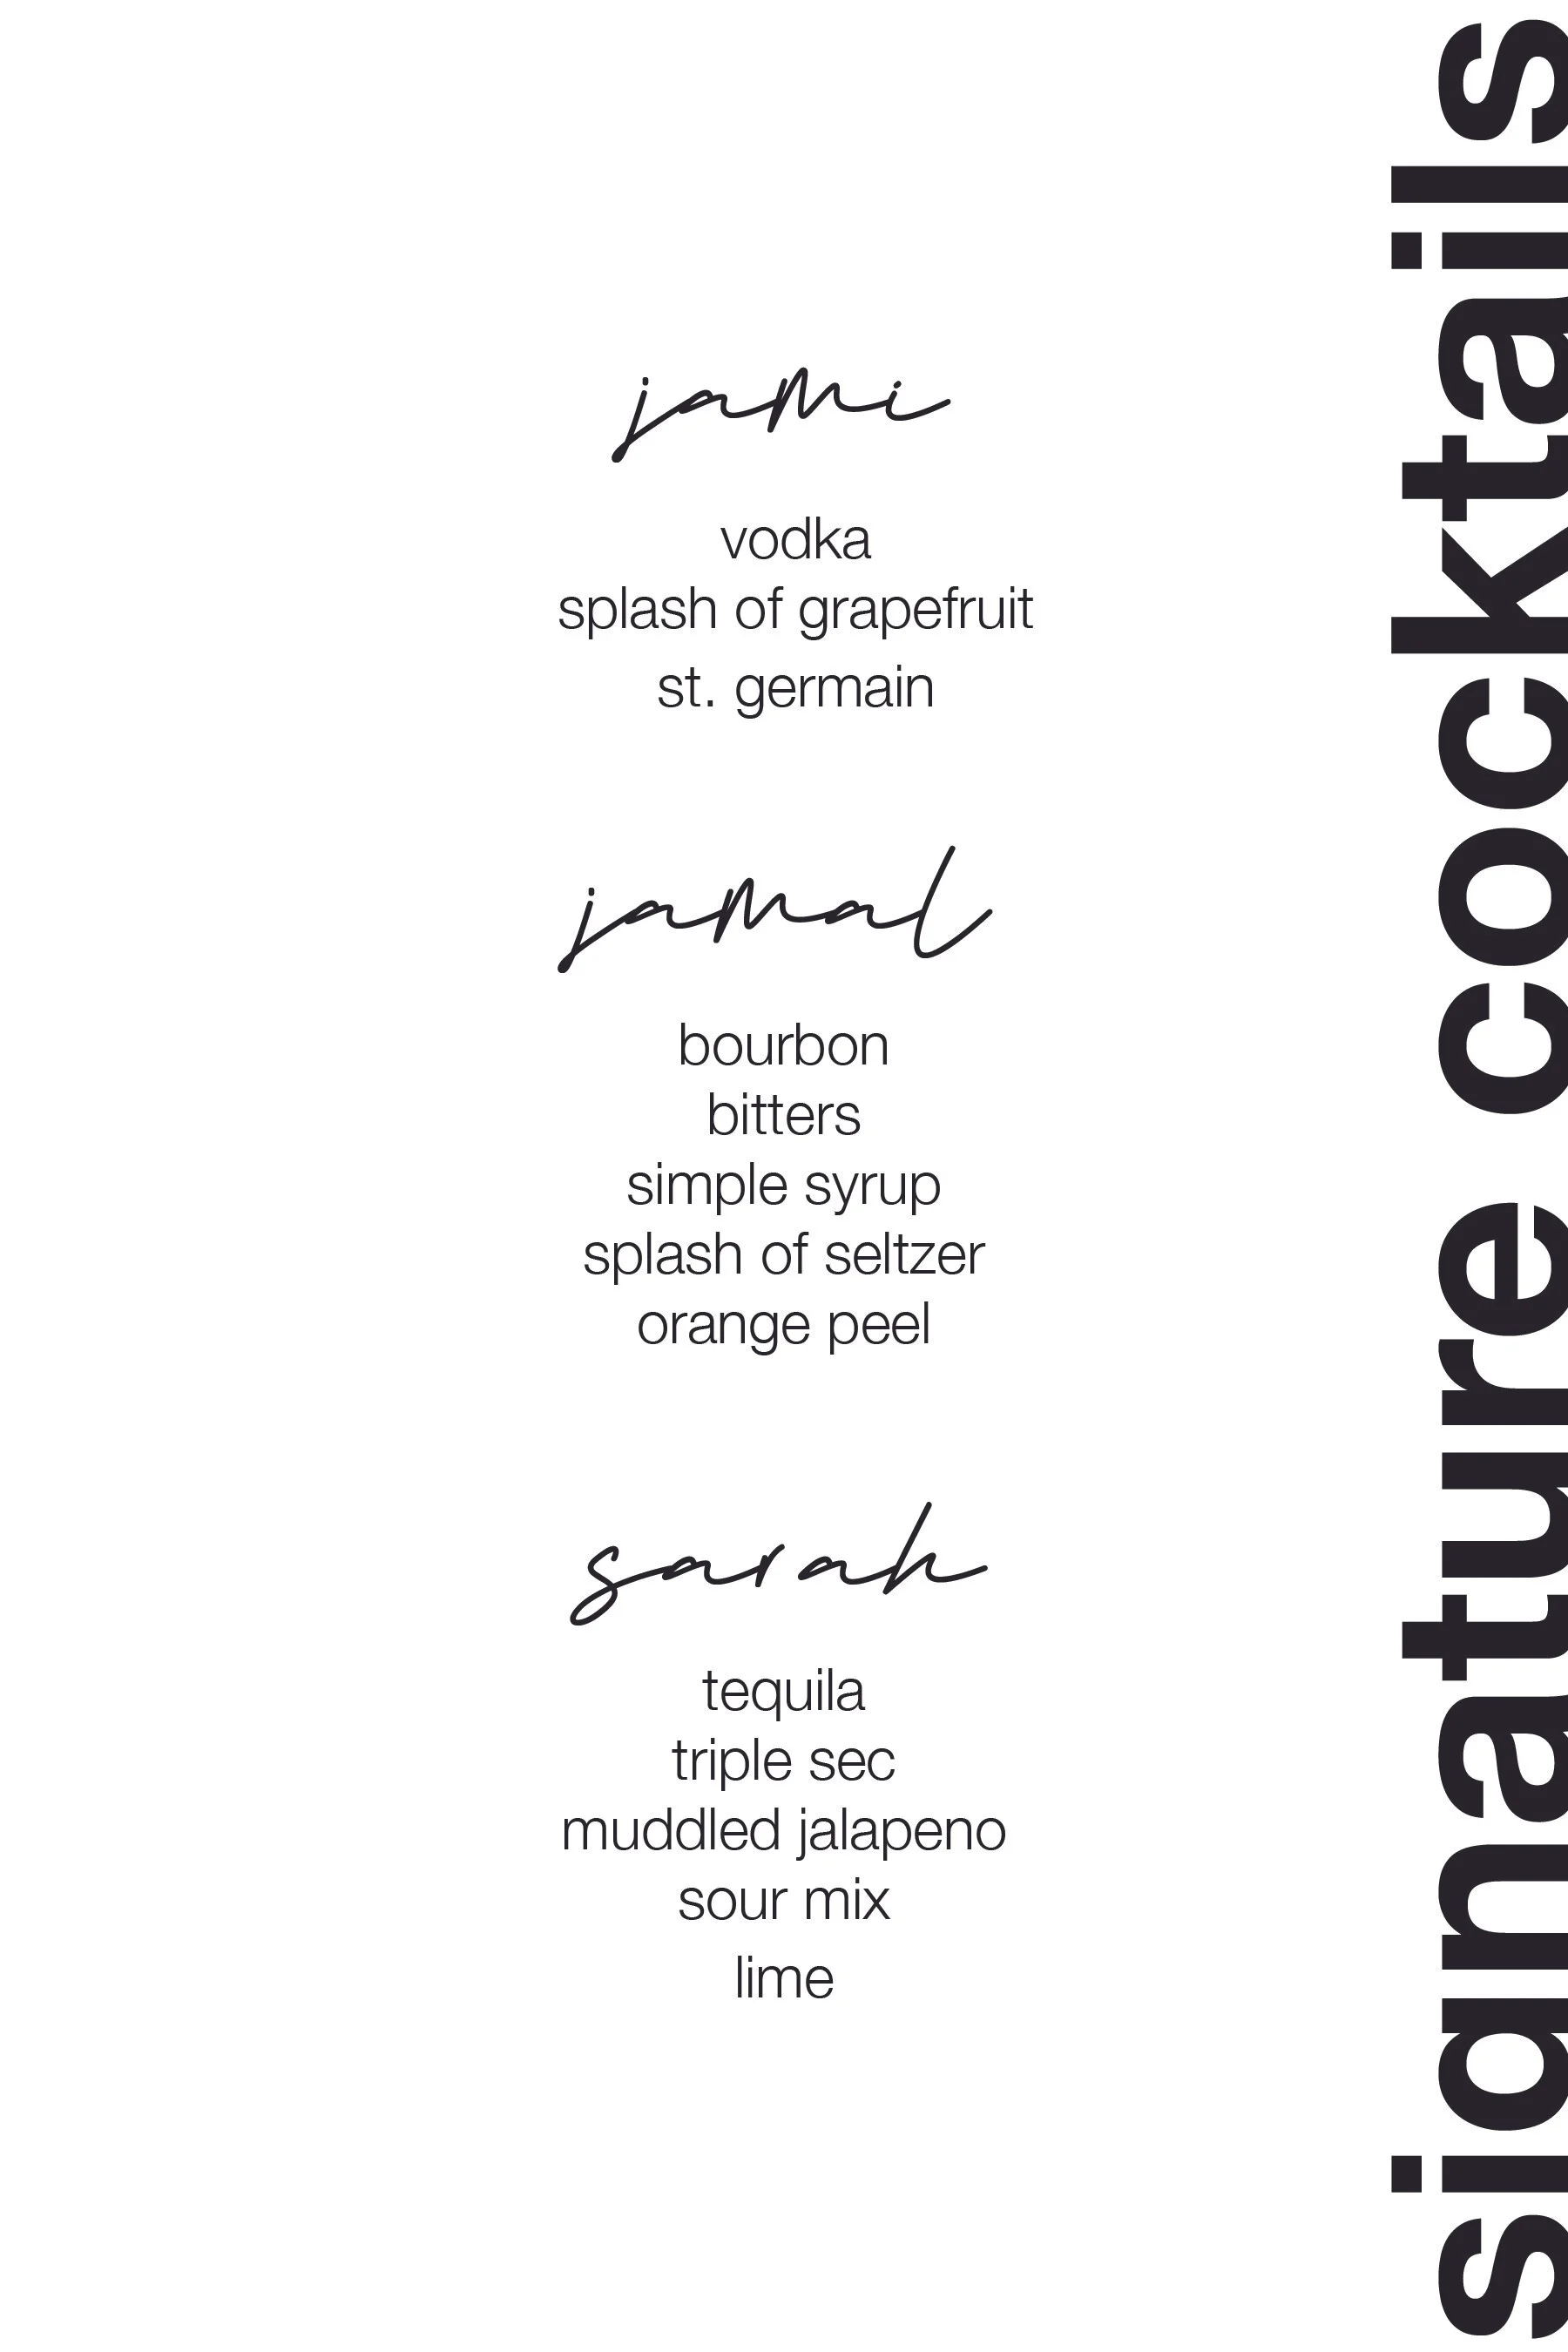 jami
vodka
splash of grapefruit
st. germain
jamal
bourbon
bitters
simple syrup
splash of seltzer
orange peel
sarah
tequila
triple sec
muddled jalapeno
sour mix
lime
signature cocktails